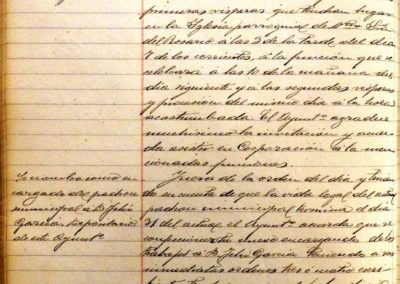 primeras vísperas que tendrán lugar
en la Iglesia parroquial de Ntra Sra
del Rosario á las 3 de la tarde del dia
7 de los corrientes, á la función que se
celebrará á las 10 de la mañana del
dia siguiente y á las segundas vísperas
y procesion del mismo dia á la hora
acostumbrada. El Ayuntº agradece
muchisimo la invitación y acuer-
da asistir en Corporación á la men-
cionadas funciones.
Fuera de la orden del dia y tenien-
do en cuenta de que la vida legal del actual
padron municipal termina el dia
31 del actual, el Ayuntº acuerda que se
confeccione otro nuevo encargando de los
trabajos á D. Felix García teniendo á sus
inmediatas ordenes tres ó cuatro
Se nombra como en
cargado del padron
municipal á D. Felix
García,
de este Ayuntº